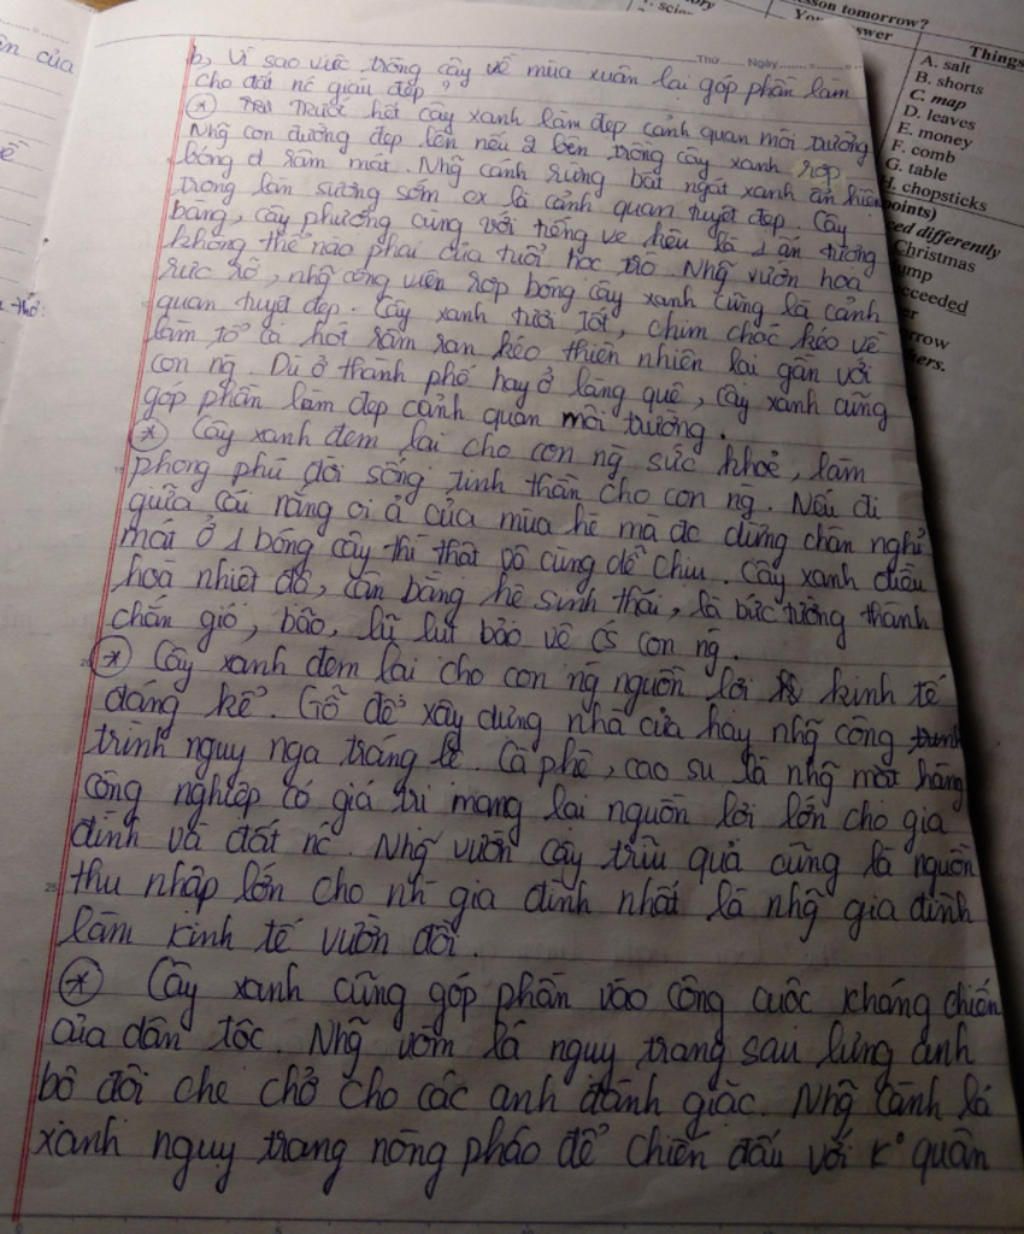 ền của
ề
a thơ:
Thứ ...... Ngày ......
b, Vì sao việc trồng cây về mùa xuân lại góp phần làm
cho đất nc giàu đẹp ?
* Trước hết cây xanh làm đẹp cảnh quan môi trường
Nhg con đường đẹp lên nếu 2 bên trồng cây xanh rợp
bóng râm mát. Nhg cánh rừng bát ngát xanh ẩn hiện
trong làn sương sớm là cảnh quan tuyệt đẹp. Cây
bàng, cây phượng cùng với tiếng ve kêu là 1 ấn tượng
không thể nào phai của tuổi học trò. Nhg vườn hoa
rực rỡ, nhg công viên rợp bóng cây xanh cũng là cảnh
quan tuyệt đẹp. Cây xanh tươi tốt, chim chóc kéo về
làm tổ ca hót râm ran kéo thiên nhiên lại gần với
con ng. Dù ở thành phố hay ở làng quê, cây xanh cũng
góp phần làm đẹp cảnh quan môi trường.
* Cây xanh đem lại cho con ng sức khoẻ, làm
phong phú đời sống tinh thần cho con ng. Nếu đi
giữa cái nắng oi ả của mùa hè mà đc dừng chân nghỉ
mát ở 1 bóng cây thì thật vô cùng dễ chịu. Cây xanh điều
hoà nhiệt độ, cân bằng hệ sinh thái, là bức tường thành
chắn gió, bão, lũ lụt bảo vệ cs con ng.
* Cây xanh đem lại cho con ng nguồn lợi kinh tế
đáng kể. Gỗ để xây dựng nhà cửa hay nhg công
trình nguy nga tráng lệ. Cà phê, cao su là nhg mặt hàng
công nghiệp có giá trị mang lại nguồn lợi lớn cho gia
đình và đất nc. Nhg vườn cây trĩu quả cũng là nguồn
thu nhập lớn cho nh gia đình nhất là nhg gia đình
làm kinh tế vườn đồi.
* Cây xanh cũng góp phần vào công cuộc kháng chiến
của dân tộc. Nhg vòm lá nguy trang sau lưng anh
bộ đội che chở cho các anh đánh giặc. Nhg cành lá
xanh nguy trang nòng pháo để chiến đấu với k° quân
25
son tomorrow?
swer
Things
A. salt
B. shorts
C. map
D. leaves
E. money
F. comb
G. table
H. chopsticks
points)
ed differently
Christmas
ump
cceeded
er
rrow
hers.